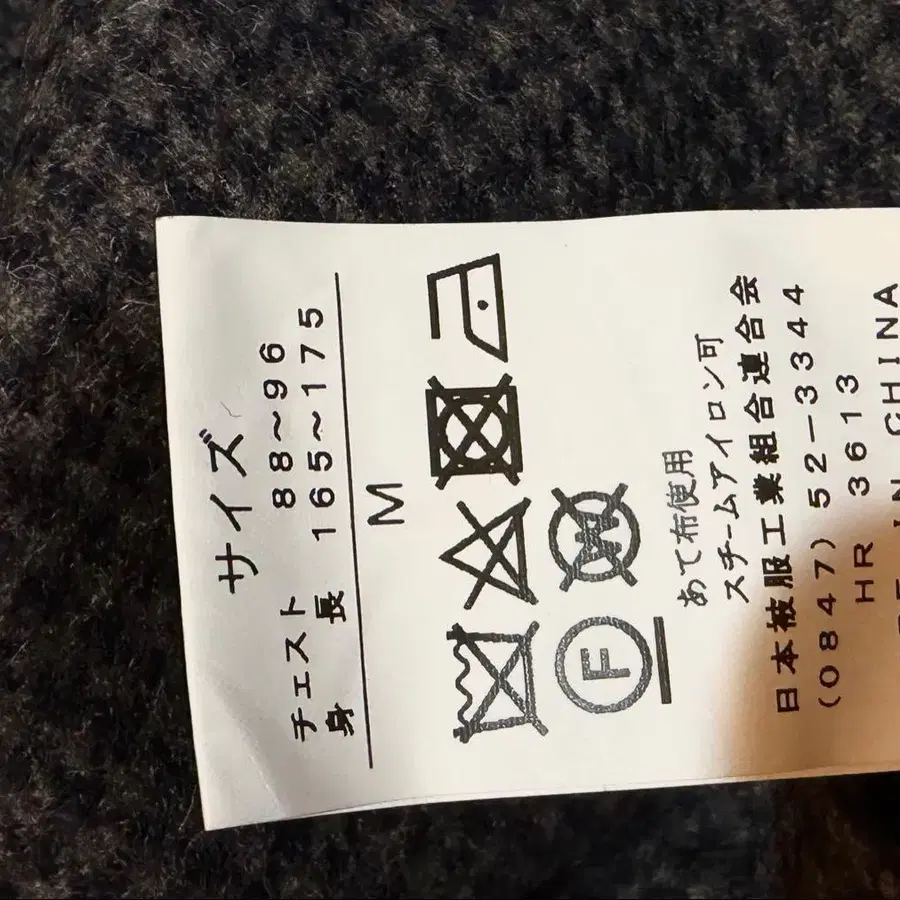 サイズ
チェスト 88~96
身長 165~175
M
F
W
あて布使用
スチームアイロン可
日本被服工業組合連合会
(0847)52-3344
HR 3613
IN CHINA